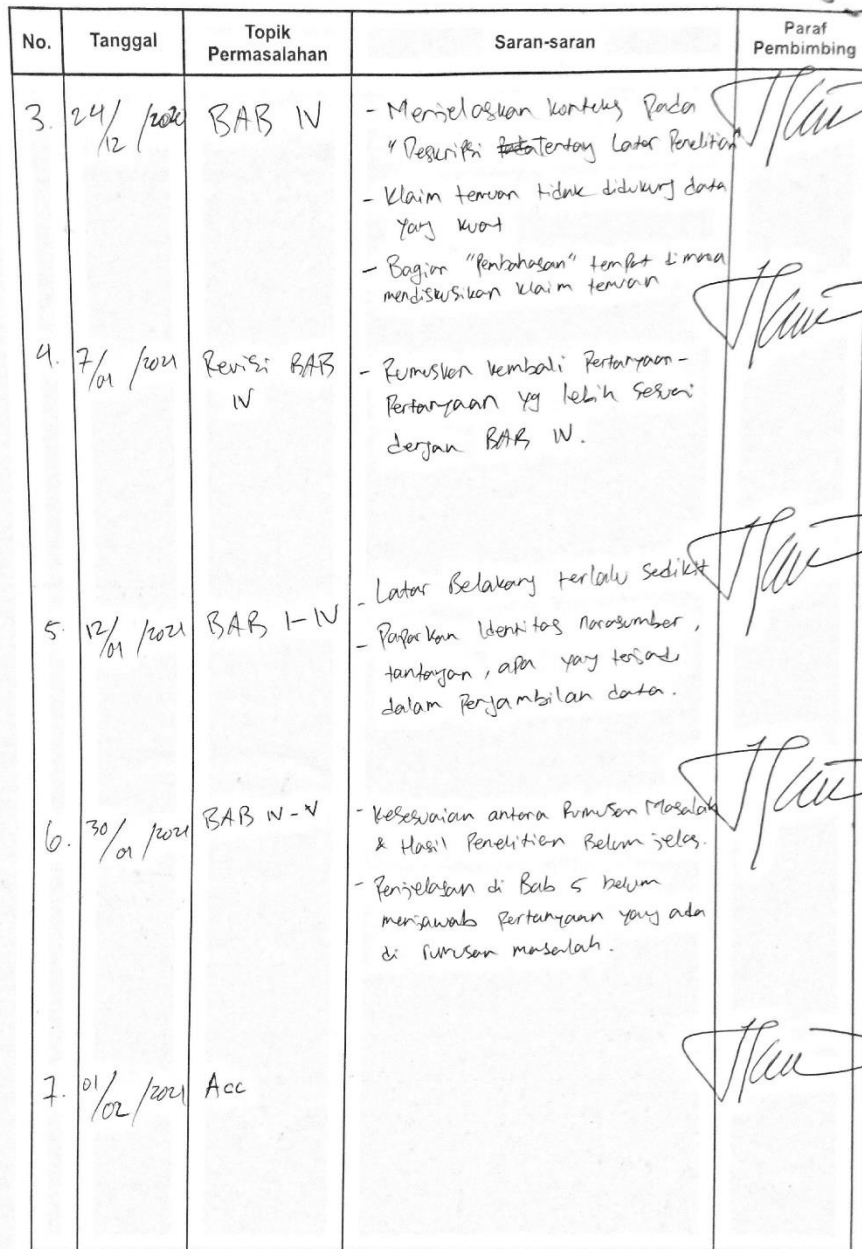 No. Tanggal Topik Permasalahan Saran-saran Paraf Pembimbing
3. 24/12/2020 BAB IV - Menjelaskan konteks Pada
"Deskripsi Tentang Latar Penelitian"
- Klaim temuan tidak didukung data
yang kuat
- Bagian "Pembahasan" tempat dimana
mendiskusikan klaim temuan
4. 7/01/2021 Revisi BAB
IV
- Rumuskan kembali Pertanyaan-
Pertanyaan yg lebih sesuai
dengan BAB IV.
- Latar Belakang terlalu sedikit
5. 12/01/2021 BAB I-IV
- Paparkan Identitas narasumber,
tantangan, apa yang terjadi
dalam Pengambilan data.
6. 30/01/2021 BAB IV-V
- Kesesuaian antara Rumusan Masalah
& Hasil Penelitian Belum jelas.
- Penjelasan di Bab 5 belum
menjawab Pertanyaan yang ada
di rumusan masalah.
7. 01/02/2021 Acc